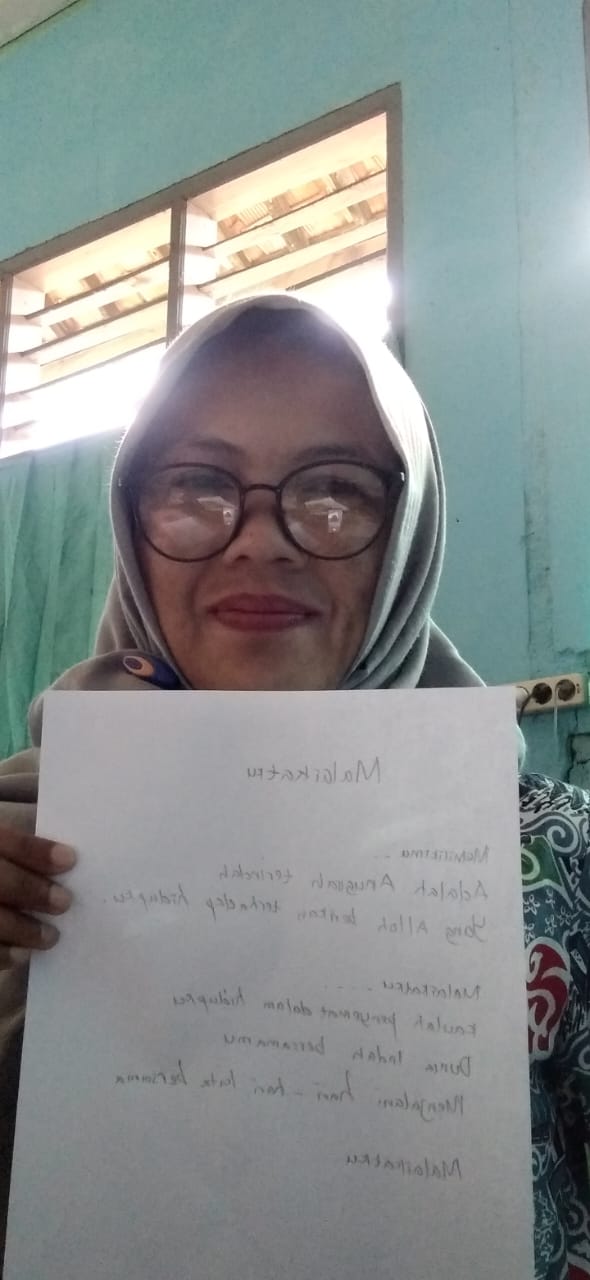 Malaikatku
Memilikimu ...
Adalah Anugrah terindah
Yang Allah berikan terhadap hidupku.
Malaikatku ....
Kaulah penyemat dalam hidupku
Dunia Indah bersamamu
Menjalani hari - hari kita bersama
Malaikatku